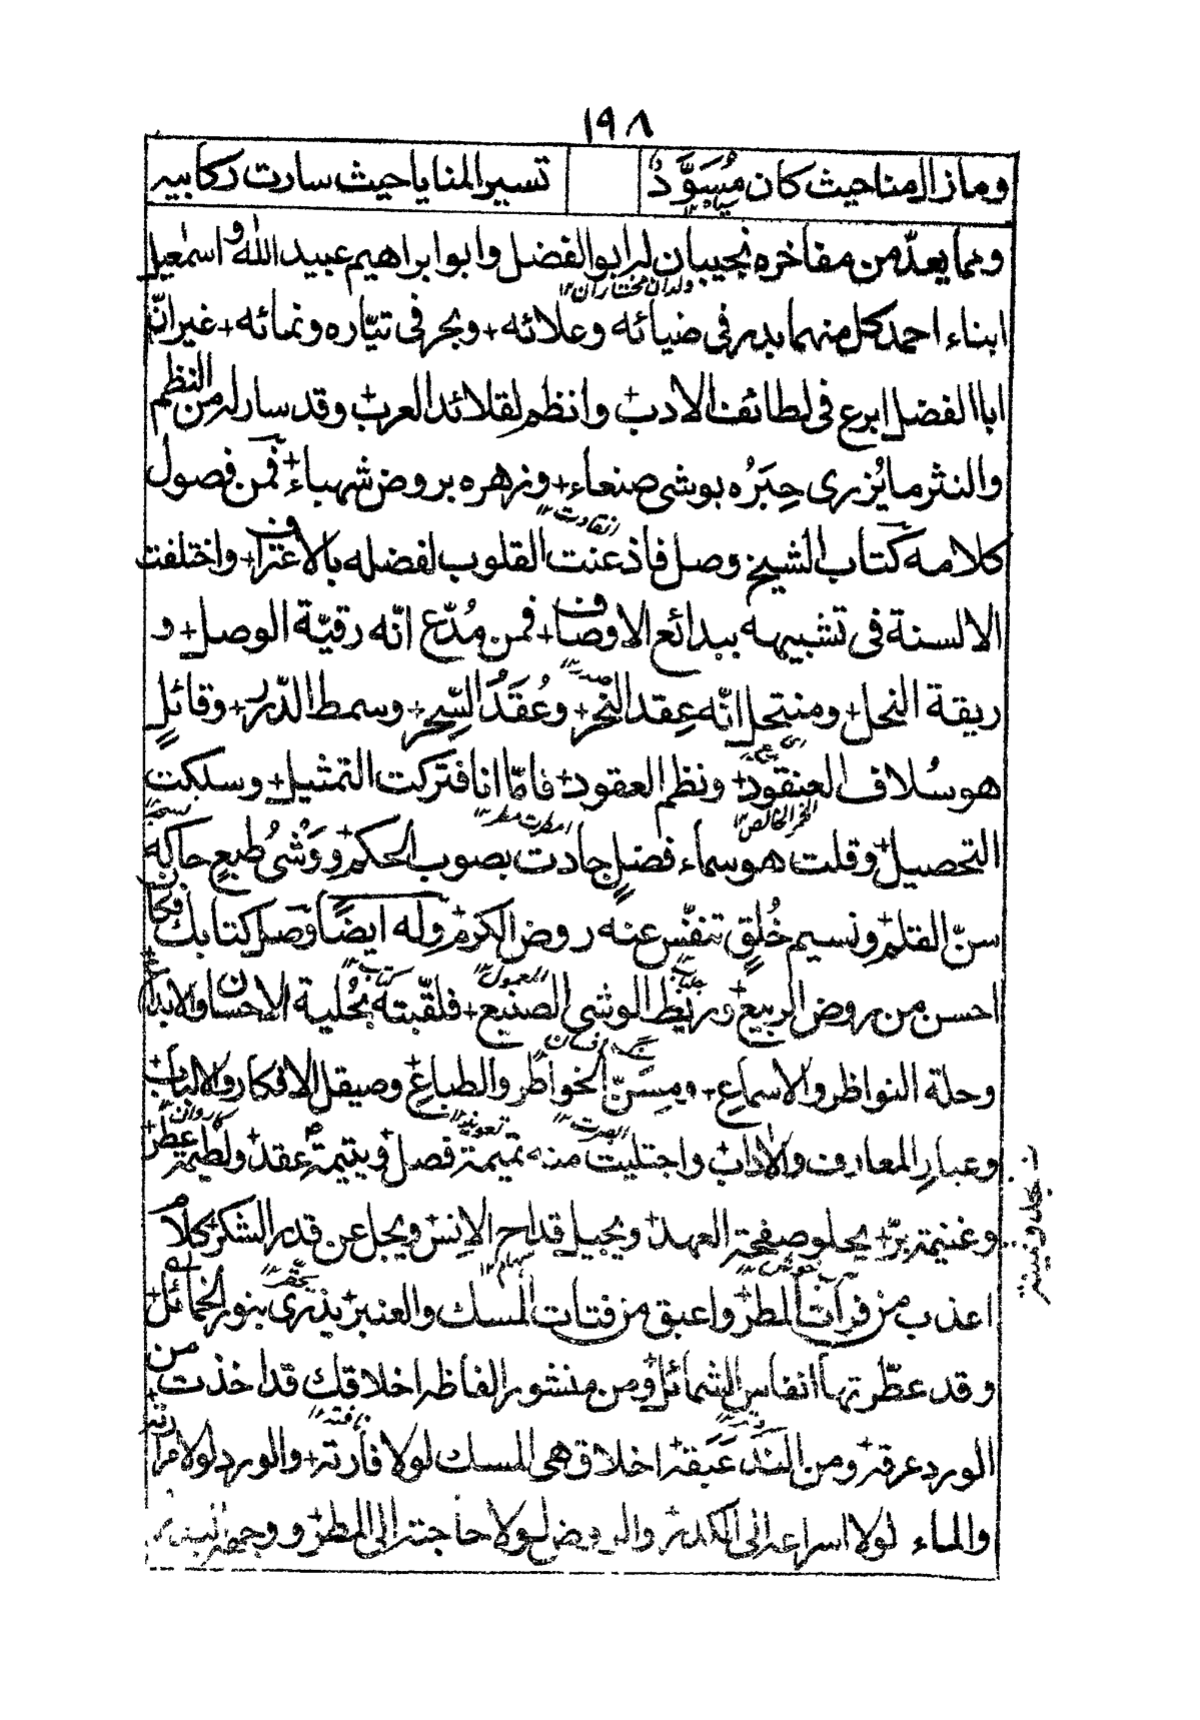 ١٩٨
وما زال منا حيث كان مُسَوَّدٌ تسير المنايا حيث سارت ركابيه
سياه ١٢
ومما يعدّ من مفاخره نجيبان له ابو الفضل وابو ابراهيم عبيد الله و اسمٰعيل
ولدان مختاران ١٢
ابناء احمد كل منهما بدر فى ضيائه وعلائه + وبحر فى تيّاره ونمائه + غير انّ
ابا الفضل ابرع فى لطائف الادب + وانظم لقلائد العرب + وقد سار له من النظم
والنثر ما يُزرى حِبَرُه بوشى صنعاء + وزهره بروض شهباء + فمن فصول
كلامه كتاب الشيخ وصل فاذعنت القلوب لفضله بالاعتراف + واختلفت
انقادت ١٢
الالسنة فى تشبيهه ببدائع الاوصاف + فمن مُدّع انّه رقيّة الوصل + و
ريقة النحل + ومنتحل انّه عِقد النحر + وعُقَدُ السِّحر + وسمط الدّرر + وقائلٍ
هو سُلاف العنقود + ونظم العقود + فامّا انا فتركت التمثيل + وسلكت
التحصيل + وقلت هو سماء فضلٍ جادت بصوب الحكم + ووَشىُ طبعٍ حاكه
الخمر الخالص ١٢ امطرت مطر ١٢
سنّ القلم + ونسيم خُلقٍ تنفّس عنه روض الكرم + وله ايضًا وصل كتابك فكان
احسن من روض الربيع + وريط الوشى الصنيع + فلقّبته بحُلية الاحسان والابداع +
المعمول ١٢ كتاب ١٢
وحلة النواظر والاسماع + ومِسَنّ الخواطر والطباع + وصيقل الافكار والالباب +
وعيار المعارف والآداب + واجتليت منه تميمة فصل + ويتيمة عقد + ولطيمة عطر +
ابصرت ١٢ تعويذ ١٢ كاروان ١٢
وغنيمة برّ + يجلو صفحة العهد + ويجيل قداح الانس + ويجل عن قدر الشكر + كلام
اعذب من فرات المطر + واعبق من فتات المسك والعنبر + يزرى بنور الخمائل +
سهام ١٢
وقد عطّرتها انفاس الشمائل + ومن منشور الفاظه اخلاقك قد اخذت من
الورد عرقه + ومن الند عَبَقه + اخلاق هى المسك لولا فأرته + والورد لولا مرارته +
نافته ١٢
والماء لولا اسراعه الى الكدر + والروض لولا حاجته الى المطر +